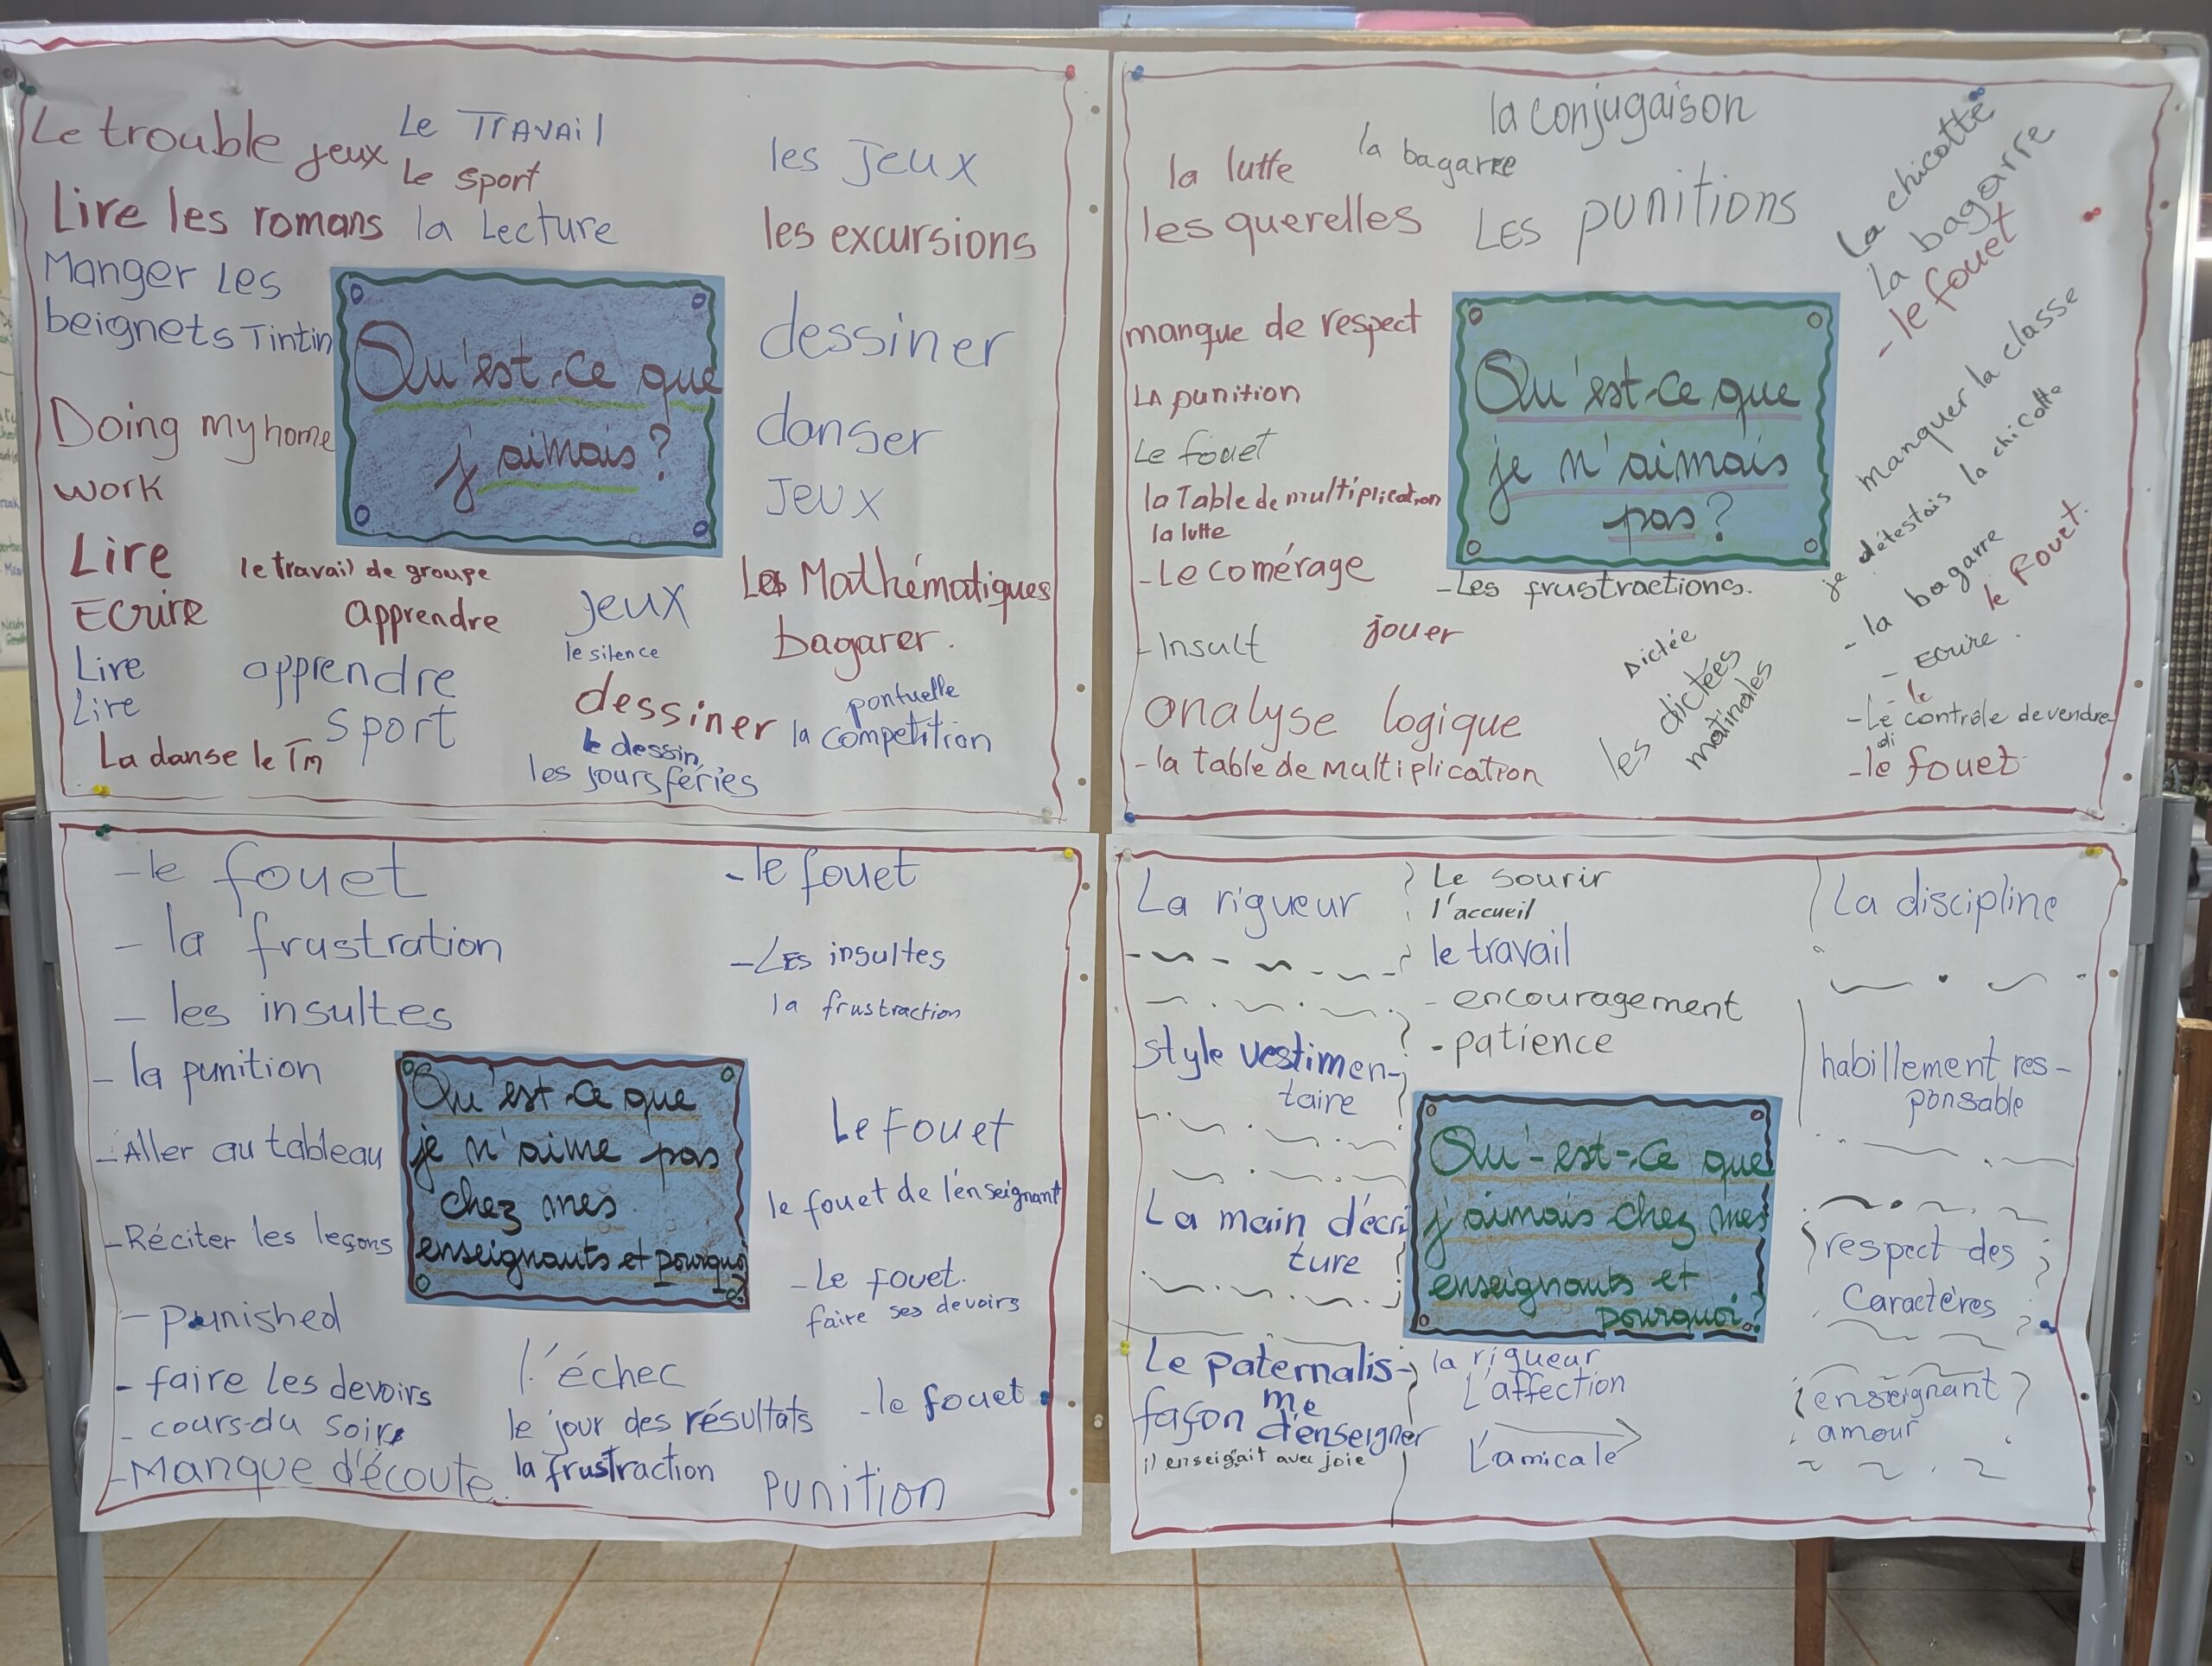 Le trouble
jeux
Le TRAVAil
le sport
les Jeux
Lire les romans
la Lecture
les excursions
Manger Les
beignets Tintin
Qu'est-ce que
j'aimais?
dessiner
Doing my home
work
danser
Jeux
Lire
le travail de groupe
Les Mathématiques
Ecrire
apprendre
jeux
bagarer.
le silence
Lire
apprendre
Lire
sport
dessiner
pontuelle
la compétition
La danse le Tm
le dessin,
les jours fériés
la conjugaison
la lutte
la bagarre
les querelles
LES PUNITIONS
La chicotte
la bagarre
- le fouet
manque de respect
Qu'est-ce que
je n'aimais
pas?
LA punition
Le fouet
manquer la classe
la Table de multiplication
la lutte
je détestais la chicotte
- Le comérage
- Les frustractions.
- la bagarre
le Fouet.
- Insult
jouer
Dictée
- Ecrire.
les dictées
matinales
analyse logique
- le
- Le contrôle de vendre-
di
- la table de multiplication
- le fouet
- le fouet
- la frustration
- les insultes
- la punition
- Aller au tableau
- Réciter les leçons
- punished
- faire les devoirs
- cours du soir
- Manque d'écoute.
Qu'est-ce que
je n'aime pas
chez mes
enseignants et pourquoi
?
- le fouet
- LES insultes
la frustraction
Le Fouet
le fouet de l'enseignant
- Le fouet.
faire ses devoirs
l'échec
le jour des résultats
la frustraction
- le fouet
PUNITION
La rigueur
style vestimen-
taire
La main d'écri
ture
Le paternalis-
me
façon d'enseigner
il enseigait avec joie
Le sourir
l'accueil
le travail
- encouragement
- patience
Qu'-est-ce que
j'aimais chez mes
enseignants et
pourquoi?
la rigueur
L'affection
L'amicale
La discipline
habillement res-
ponsable
respect des
Caractères
enseignant
amour